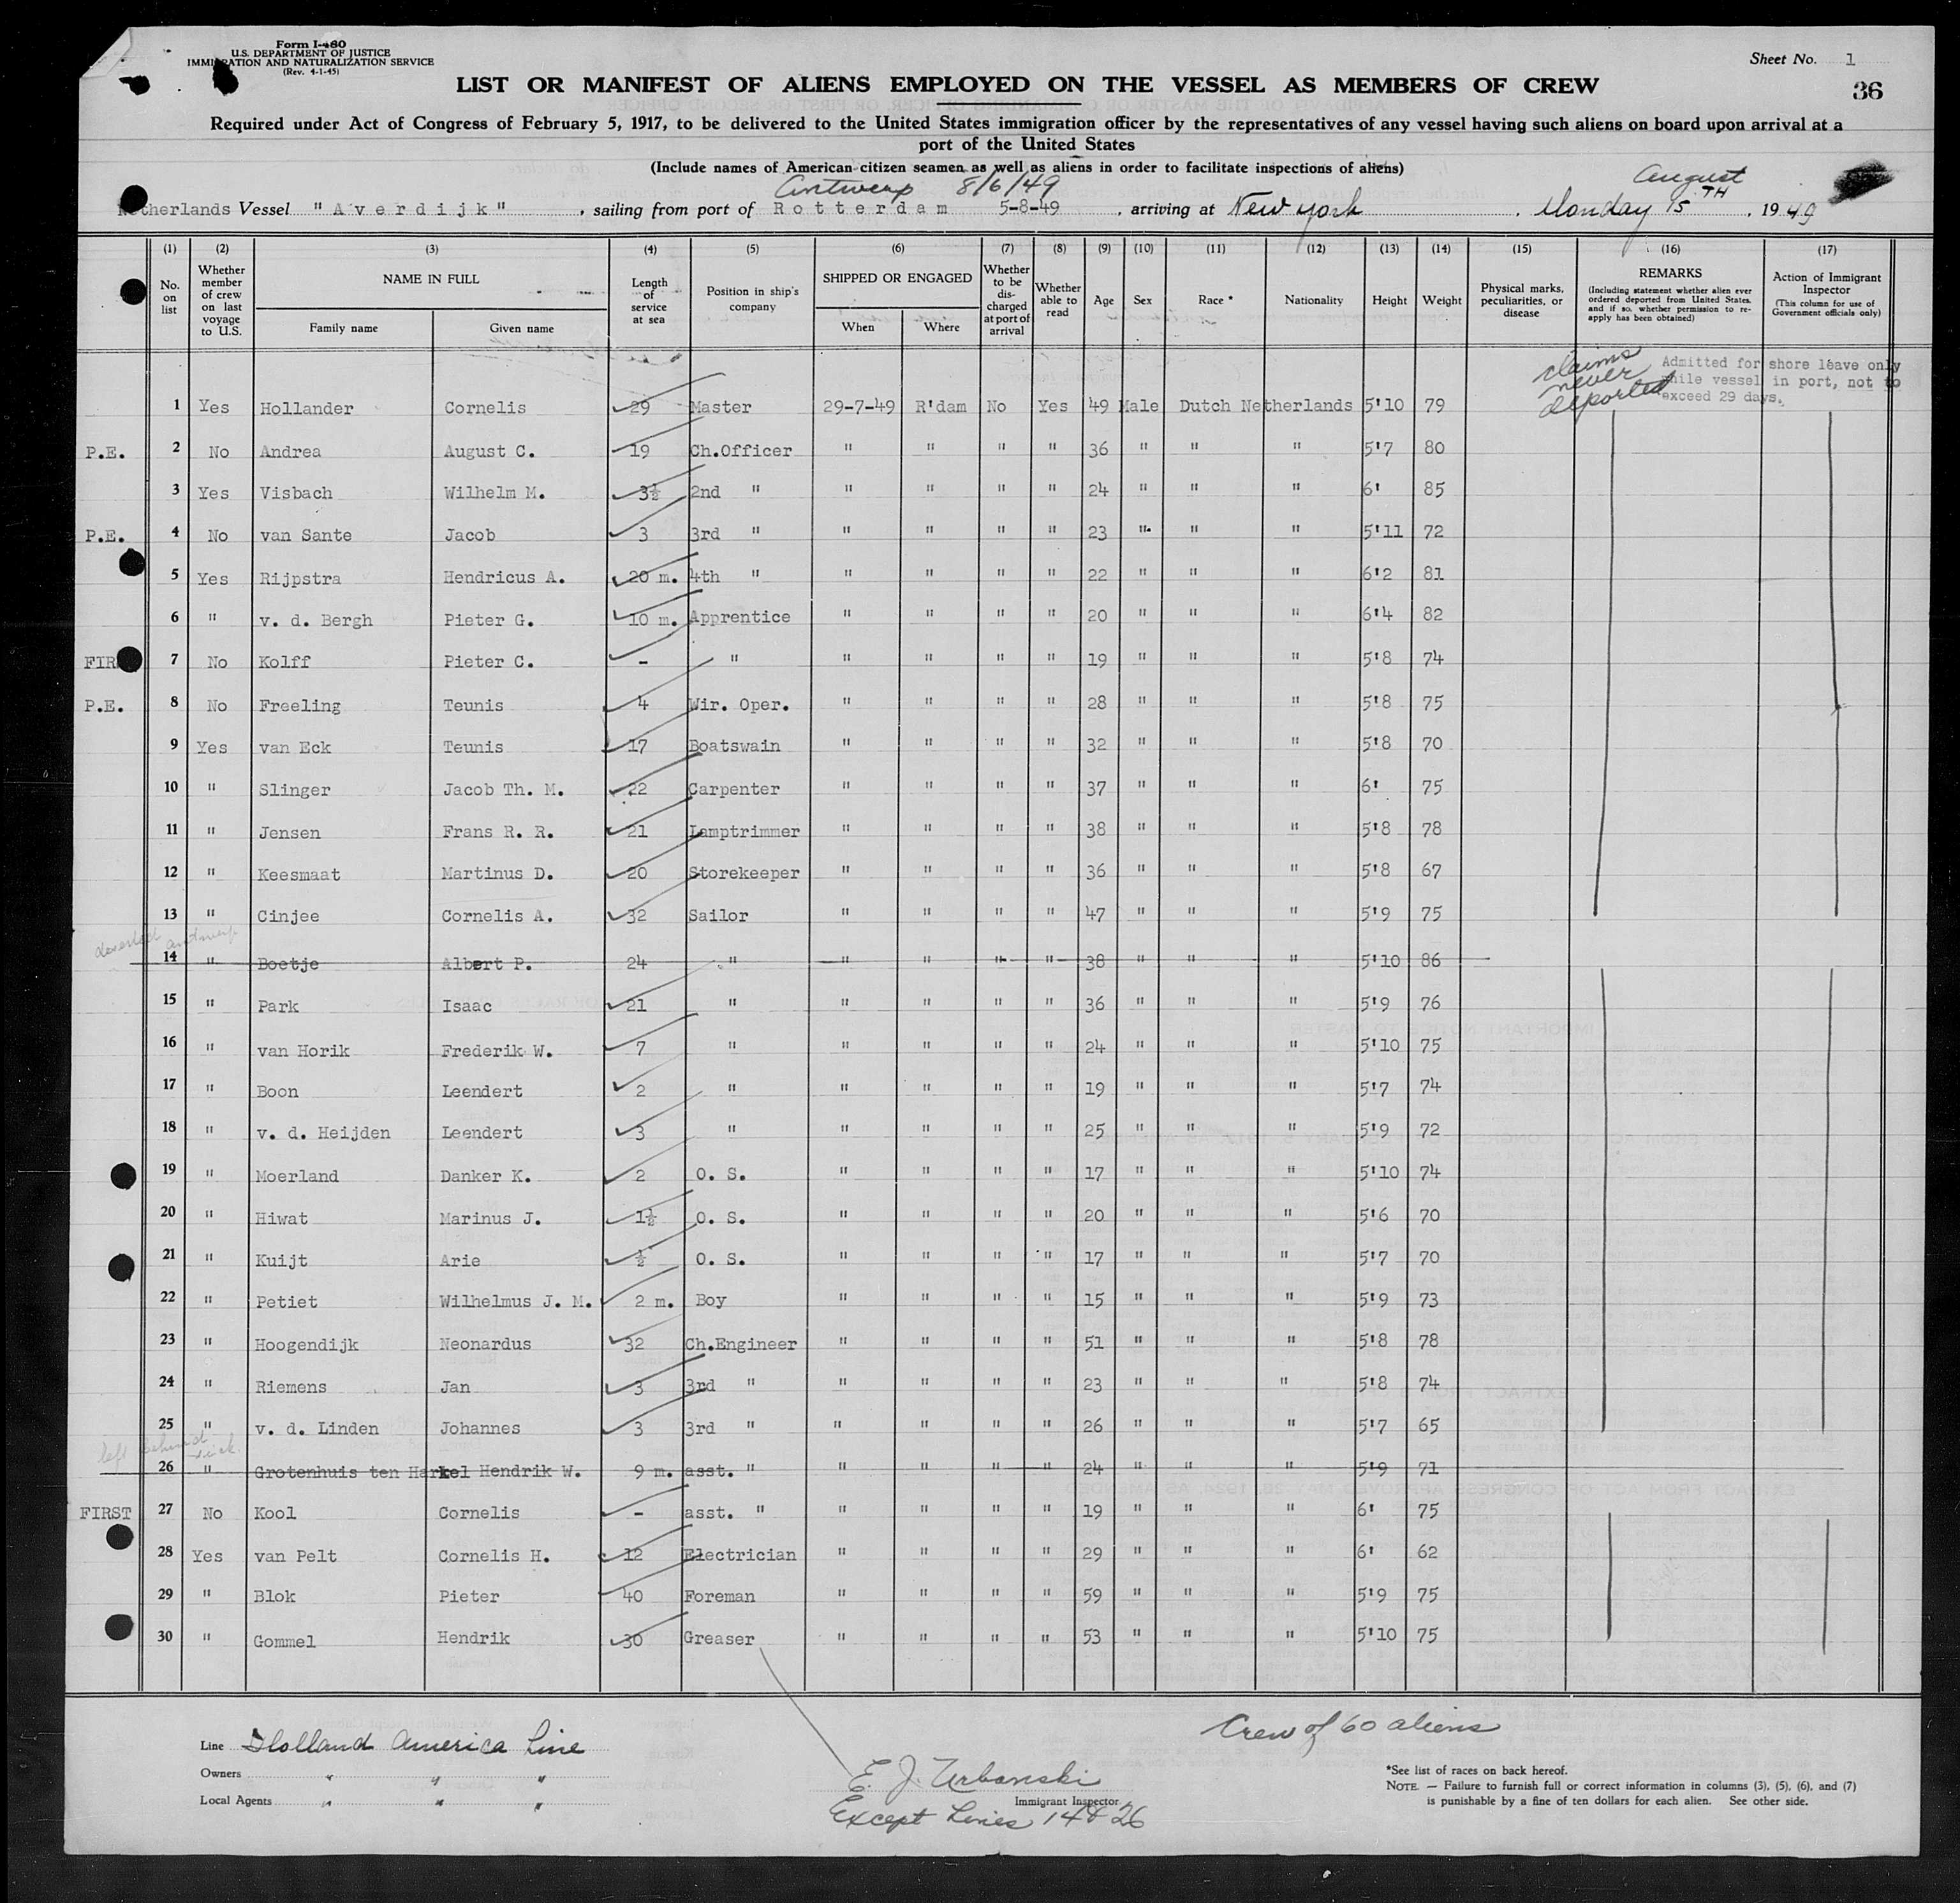 Form I-480
U.S. DEPARTMENT OF JUSTICE
IMMIGRATION AND NATURALIZATION SERVICE
(Rev. 4-1-45)
Sheet No. 1
36
LIST OR MANIFEST OF ALIENS EMPLOYED ON THE VESSEL AS MEMBERS OF CREW
Required under Act of Congress of February 5, 1917, to be delivered to the United States immigration officer by the representatives of any vessel having such aliens on board upon arrival at a
port of the United States
(Include names of American citizen seamen as well as aliens in order to facilitate inspections of aliens)
Antwerp 8/6/49 August
Netherlands Vessel "Averdijk", sailing from port of Rotterdam 5-8-49, arriving at New York, Monday 15TH, 1949
(1) (2) (3) (4) (5) (6) (7) (8) (9) (10) (11) (12) (13) (14) (15) (16) (17)
No. on list
Whether member of crew on last voyage to U.S.
NAME IN FULL
Family name
Given name
Length of service at sea
Position in ship's company
SHIPPED OR ENGAGED
When
Where
Whether to be discharged at port of arrival
Whether able to read
Age
Sex
Race *
Nationality
Height
Weight
Physical marks, peculiarities, or disease
REMARKS
(Including statement whether alien ever ordered deported from United States, and if so, whether permission to re-apply has been obtained)
Action of Immigrant Inspector
(This column for use of Government officials only)
claims never deported
Admitted for shore leave only
while vessel in port, not to
exceed 29 days.
1 Yes Hollander Cornelis 29 Master 29-7-49 R'dam No Yes 49 Male Dutch Netherlands 5'10 79
P.E. 2 No Andrea August C. 19 Ch.Officer " " " " 36 " " " 5'7 80
3 Yes Visbach Wilhelm M. 3½ 2nd " " " " " 24 " " " 6' 85
P.E. 4 No van Sante Jacob 3 3rd " " " " " 23 " " " 5'11 72
5 Yes Rijpstra Hendricus A. 20 m. 4th " " " " " 22 " " " 6'2 81
6 " v. d. Bergh Pieter G. 10 m. Apprentice " " " " 20 " " " 6'4 82
FIRST 7 No Kolff Pieter C. - " " " " " 19 " " " 5'8 74
P.E. 8 No Freeling Teunis 4 Wir. Oper. " " " " 28 " " " 5'8 75
9 Yes van Eck Teunis 17 Boatswain " " " " 32 " " " 5'8 70
10 " Slinger Jacob Th. M. 22 Carpenter " " " " 37 " " " 6' 75
11 " Jensen Frans R. R. 21 Lamptrimmer " " " " 38 " " " 5'8 78
12 " Keesmaat Martinus D. 20 Storekeeper " " " " 36 " " " 5'8 67
13 " Cinjee Cornelis A. 32 Sailor " " " " 47 " " " 5'9 75
deserted antwerp
14 " Boetje Albert P. 24 " " " " " 38 " " " 5'10 86
15 " Park Isaac 21 " " " " " 36 " " " 5'9 76
16 " van Horik Frederik W. 7 " " " " " 24 " " " 5'10 75
17 " Boon Leendert 2 " " " " " 19 " " " 5'7 74
18 " v. d. Heijden Leendert 3 " " " " " 25 " " " 5'9 72
19 " Moerland Danker K. 2 O. S. " " " " 17 " " " 5'10 74
20 " Hiwat Marinus J. 1½ O. S. " " " " 20 " " " 5'6 70
21 " Kuijt Arie ½ O. S. " " " " 17 " " " 5'7 70
22 " Petiet Wilhelmus J. M. 2 m. Boy " " " " 15 " " " 5'9 73
23 " Hoogendijk Neonardus 32 Ch.Engineer " " " " 51 " " " 5'8 78
24 " Riemens Jan 3 3rd " " " " " 23 " " " 5'8 74
25 " v. d. Linden Johannes 3 3rd " " " " " 26 " " " 5'7 65
left behind sick
26 " Grotenhuis ten Harkel Hendrik W. 9 m. asst. " " " " " 24 " " " 5'9 71
FIRST 27 No Kool Cornelis - asst. " " " " " 19 " " " 6' 75
28 Yes van Pelt Cornelis H. 12 Electrician " " " " 29 " " " 6' 62
29 " Blok Pieter 40 Foreman " " " " 59 " " " 5'9 75
30 " Gommel Hendrik 30 Greaser " " " " 53 " " " 5'10 75
Crew of 60 aliens
Line Holland America Line
Owners " " "
Local Agents " " "
E. J. Urbanski
Immigrant Inspector
Except Lines 14 & 26
*See list of races on back hereof.
NOTE. — Failure to furnish full or correct information in columns (3), (5), (6), and (7)
is punishable by a fine of ten dollars for each alien. See other side.